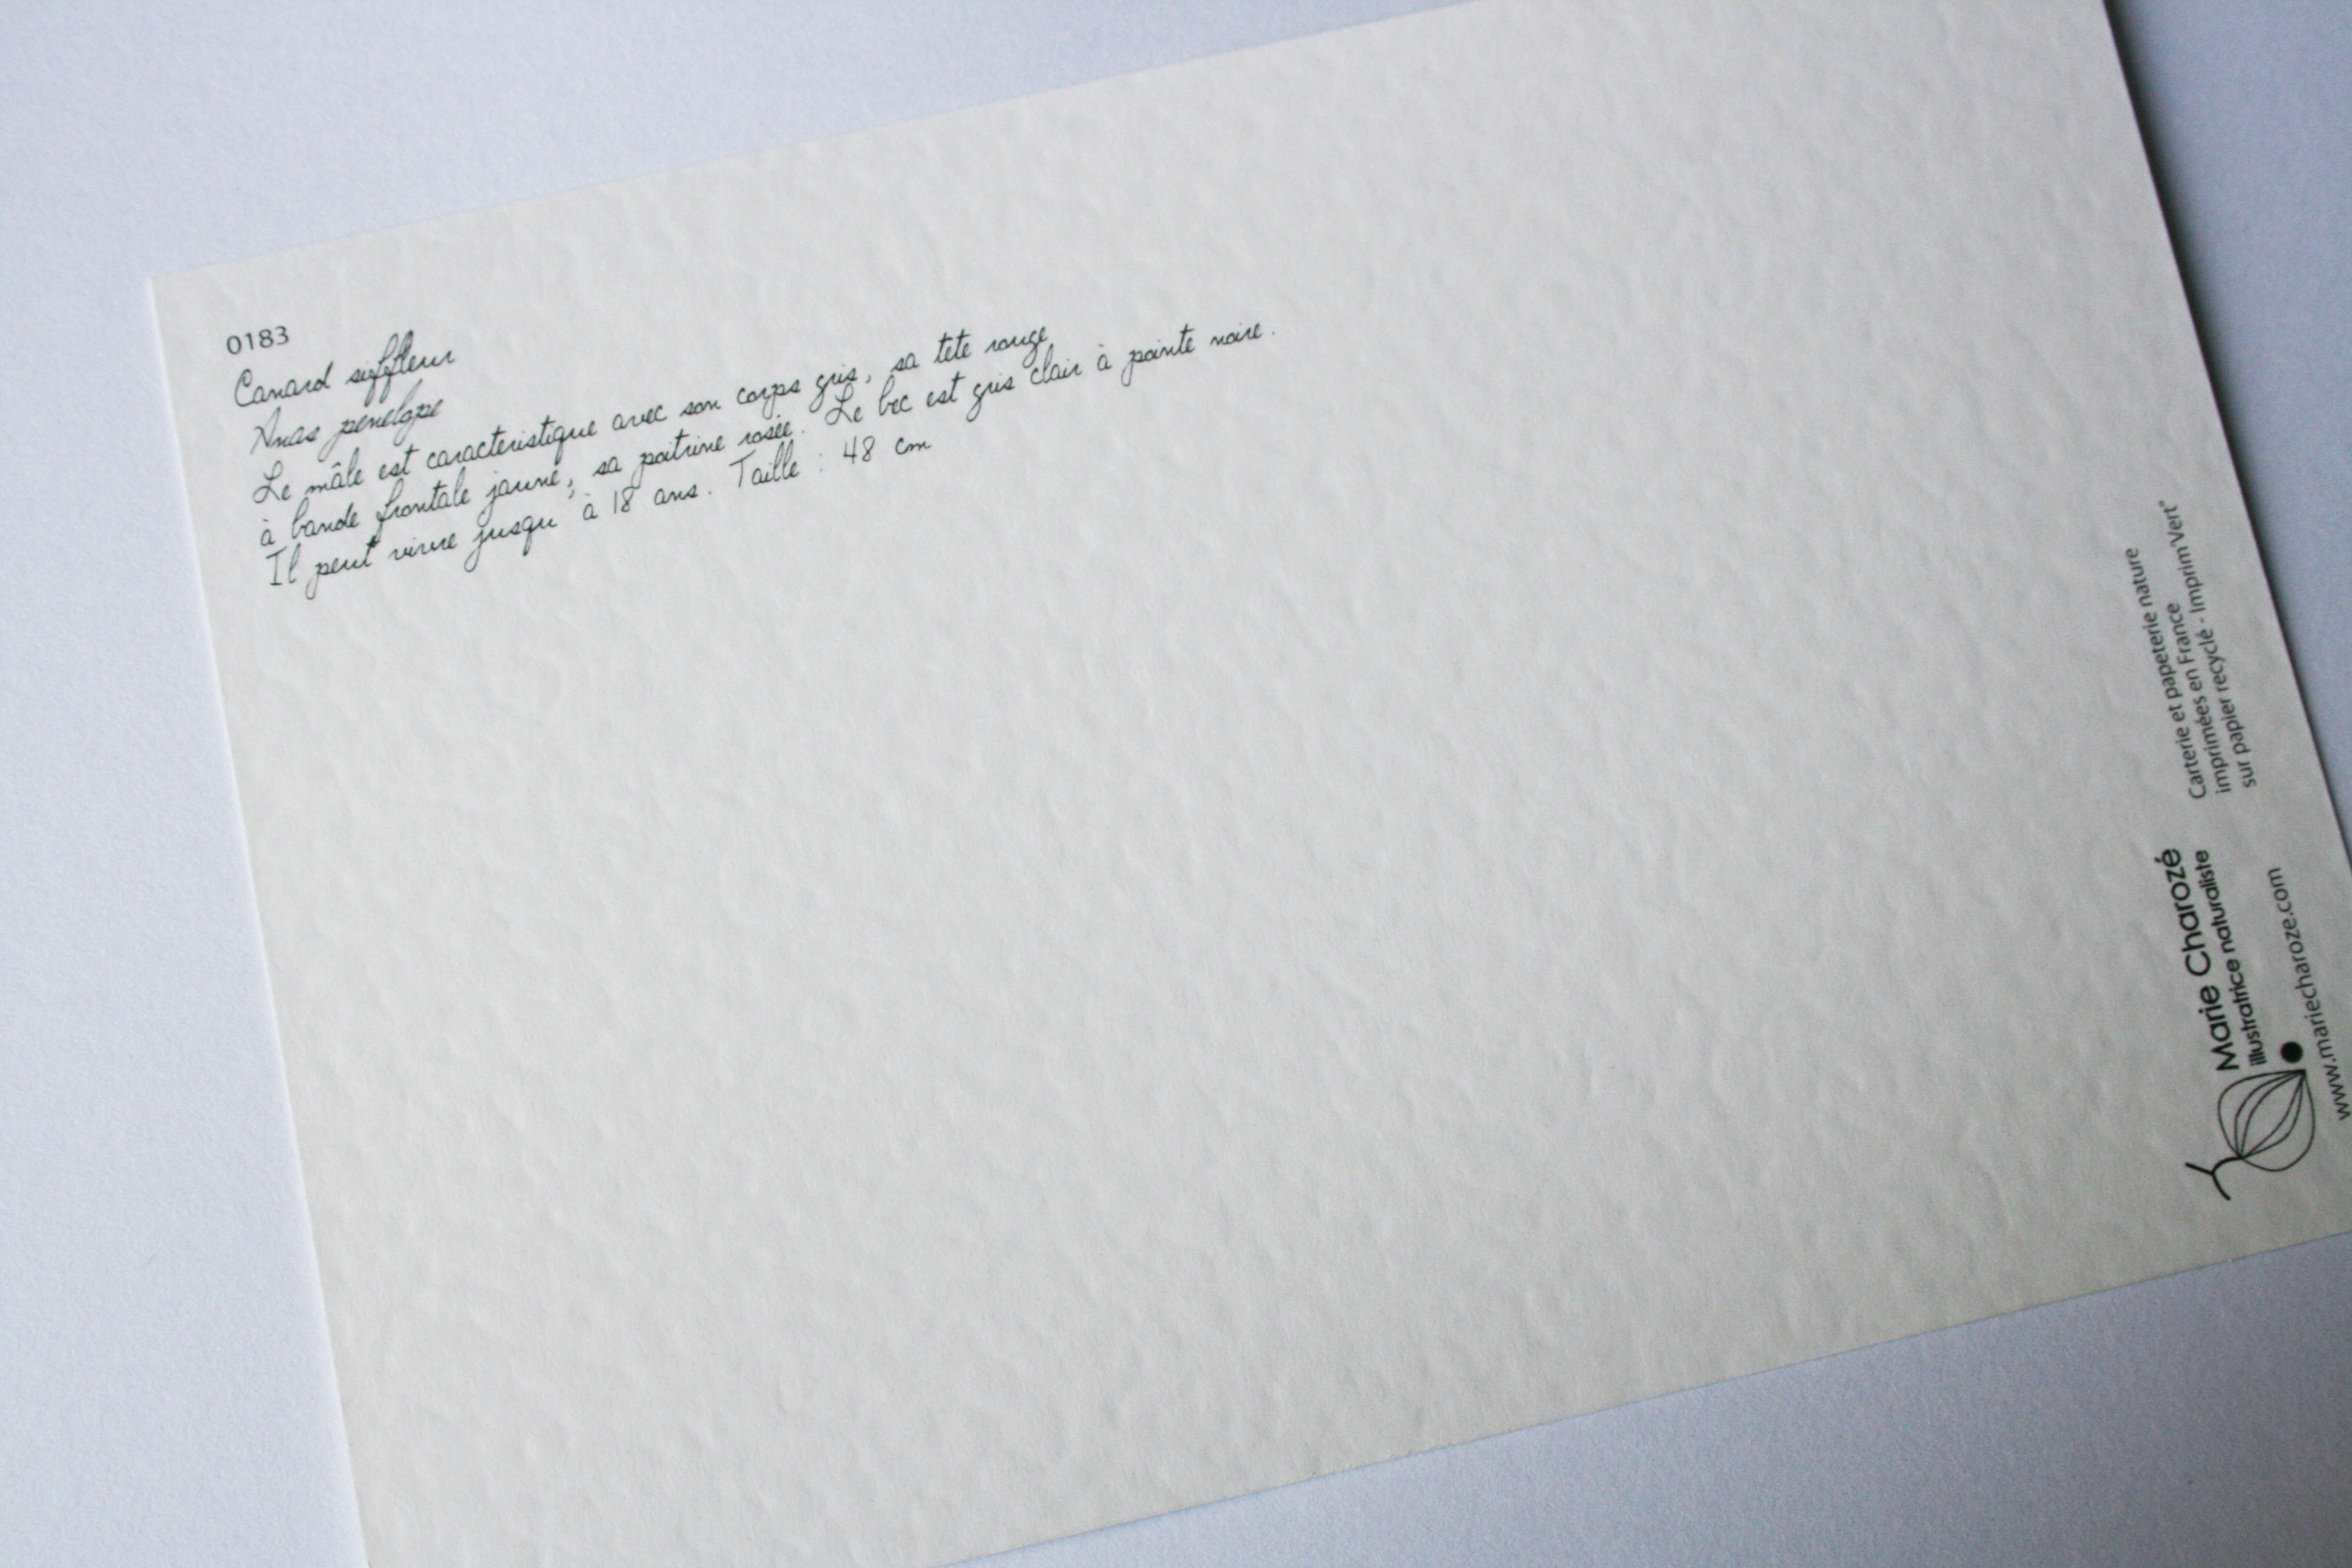 0183
Canard siffleur
Anas penelope
Le mâle est caractéristique avec son corps gris, sa tête rouge
à bande frontale jaune, sa poitrine rosée. Le bec est gris clair à pointe noire.
Il peut vivre jusqu'à 18 ans. Taille : 48 cm
Carterie et papeterie nature
imprimées en France
sur papier recyclé - Imprim'Vert®
Marie Charozé
illustratrice naturaliste
www.mariecharoze.com